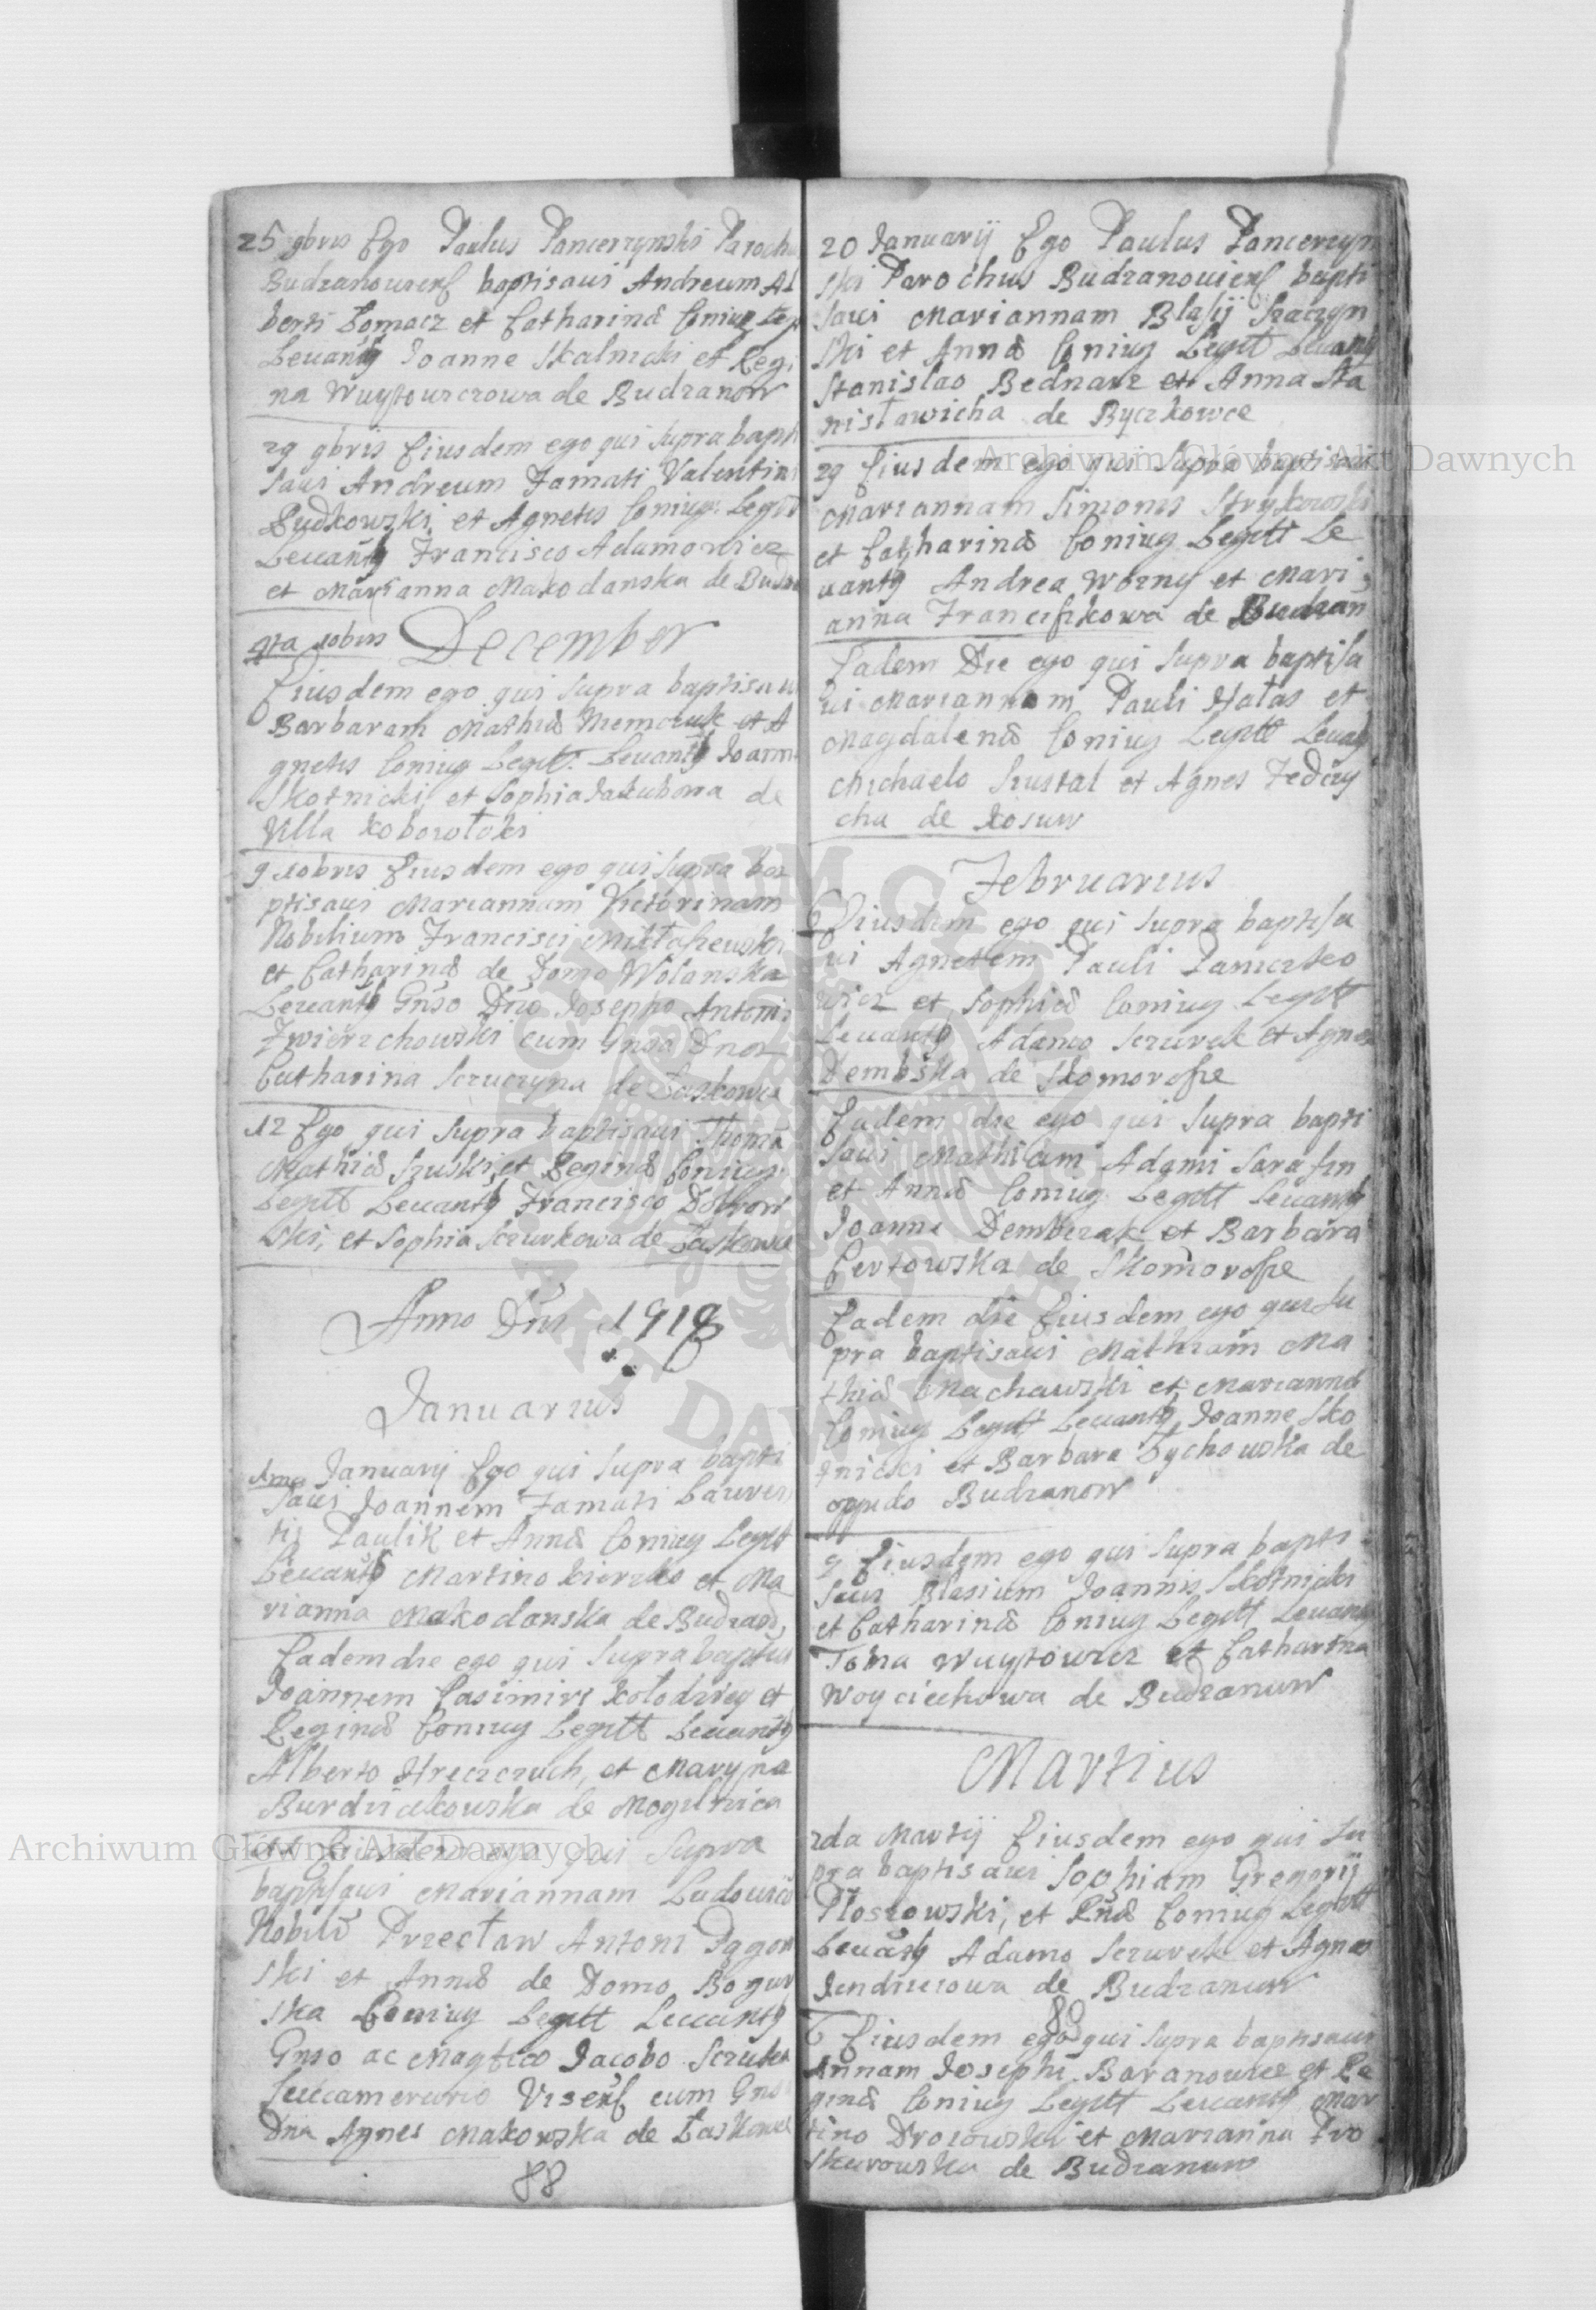 25 9bris Ego Paulus Pancerzynski Parochus
Budzanouiens baptisaui Andreum Al
berti Tomacz et Catharinæ Coniug Leg
Leuantg Joanne Skalnicki et Regi
na Wuytourczowa de Budzanow
29 9bris Eiusdem ego qui supra bapti
saui Andreum Famati Valentini
Rudkowski et Agnetis Coniug: Legitt
Leuantg Francisco Adamowicz
et Marianna Makodanska de Budza
4ta Xobris December
Eiusdem ego qui supra baptisaui
Barbaram Mathiæ Niemczuk et A
gnetis Coniug Legitt: Leuantg Joanne
Skotnicki et Sophia Jakubowa de
Villa Kobowłoki
9 Xobris Eiusdem ego qui supra ba
ptisaui Mariannam Victorinam
Nobilium Francisci Mikłaszewski
et Catharinæ de Domo Wolanska
Leuantg Gnso Dno Josepho Antoni
Zwierzchowski cum Gnsa Dna
Catharina Sczuczyna de Łaskowce
12 Ego qui supra baptisaui Thoma
Mathiæ Szuski, et Reginæ Coniug:
Legitt Leuantg Francisco Dobrow
ski, et Sophia Sczurkowa de Łaskowce
Anno Dni 1718
Januarius
1ma Januarij Ego qui supra bapti
saui Joannem Famati Lauren
tij Paulik et Annæ Coniug Legitt
Leuantg Martino Kierzko et Ma
rianna Makodanska de Budzan
Eadem die ego qui supra baptisa
Joannem Casimiri Kołodziey et
Reginæ Coniug Legitt Leuantg
Alberto Hreczczuch, et Maryna
Burdziakowska de Mogilnica
Eiusdem ego qui supra
baptisaui Mariannam Ludouicā
Nobiliū Przecław Antoni Pagow
ski et Annæ de Domo Bogur
ska Coniug Legitt Leuantg
Gnso ac Magfico Jacobo
Succamerario Visens cum Gnsa
Dna Agnes Makowska de Łaskowce
88
20 Januarij Ego Paulus Pancerzyn
ski Parochus Budzanouiens bapti
saui Mariannam Blasij Szaczyn
ski et Annæ Coniug Legitt Leuantg
Stanislao Bednarz et Anna Sta
nisławicha de Byczkowce
29 Eiusdem ego qui supra baptisaui
Mariannam Simonis Strykowski
et Catharinæ Coniug Legitt Le
uantg Andrea Wozny et Mari
anna Franciszkowa de Budzan
Eadem Die ego qui supra baptisa
ui Mariannam Pauli Hałas et
Magdalenæ Coniug Legitt Leuatg
Michaelo Szustal et Agnes Fedczy
cha de Kosuw
Februarius
6 Eiusdem ego qui supra baptisa
ui Agnetem Pauli
wicz et Sophiæ Coniug Legitt
Leuantg Adamo Sczurek et Agnes
Dembska de Skomorosze
Eadem die ego qui supra bapti
saui Mathiam Adami Sarafin
et Annæ Coniug Legitt Leuantg
Joanne Dembczak et Barbara
Certowska de Skomorosze
Eadem die Eiusdem ego qui su
pra baptisaui Mathiam Ma
thiæ Machawski et Mariannæ
Coniug Legitt Leuantg Joanne Sko
tnicki et Barbara Tychowska de
oppido Budzanow
9 Eiusdem ego qui supra bapti
saui Blasium Joannis Skotnicki
et Catharinæ Coniug Legitt Leuantg
Toma Wuytowicz et Catharina
Woyciechowa de Budzanuw
Martius
2da Martij Eiusdem ego qui su
pra baptisaui Sophiam Gregorij
Płoszowski, et Coniug Legitt
Leuatg Adamo Sczurek et Agnes
Jendrzeiowa de Budzanuw
89
6 Eiusdem ego qui supra baptisaui
Annam Josephi Baranowicz et Re
ginæ Coniug Legitt Leuantg Mar
tino Drozowski et Marianna Pro
skurowska de Budzanuw
Archiwum Główne Akt Dawnych
Archiwum Główne Akt Dawnych
ARCHIWUM GŁÓWNE AKT DAWNYCH